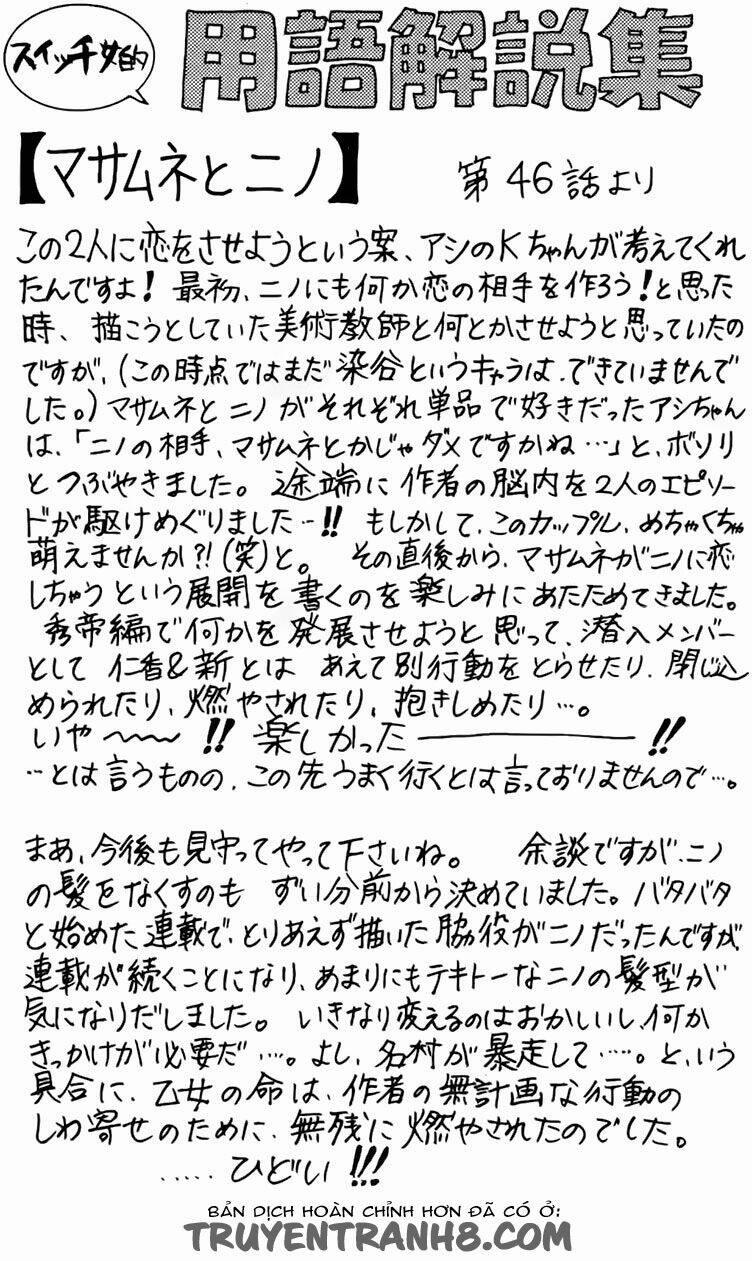 スイッチ女的
用語解説集
【マサムネとニノ】 第46話より
この2人に恋をさせようという案、アシのKちゃんが考えてくれ
たんですよ！最初、ニノにも何か恋の相手を作ろう！と思った
時、描こうとしていた美術教師と何とかさせようと思っていたの
ですが、（この時点ではまだ染谷というキャラは、できていませんで
した。）マサムネとニノがそれぞれ単品で好きだったアシちゃん
は、「ニノの相手、マサムネとかじゃダメですかね…」と、ボソリ
とつぶやきました。途端に作者の脳内を2人のエピソー
ドが駆けめぐりました…!! もしかして、このカップル、めちゃくちゃ
萌えませんか?!（笑）と。 その直後から、マサムネがニノに恋
しちゃうという展開を書くのを楽しみにあたためてきました。
秀帝編で何かを発展させようと思って、潜入メンバー
として 仁香&新とは あえて別行動をとらせたり、閉じ込
められたり、燃やされたり、抱きしめたり…。
いや〜〜〜!! 楽しかった―――――!!
…とは言うものの、この先うまく行くとは言っておりませんので…。
まあ、今後も見守ってやって下さいね。 余談ですが、ニノ
の髪をなくすのも ずい分前から決めていました。バタバタ
と始めた連載で、とりあえず描いた脇役がニノだったんですが、
連載が続くことになり、あまりにもテキトーなニノの髪型が
気になりだしました。 いきなり変えるのはおかしいし、何か
きっかけが必要だ…。よし、名村が暴走して……。と、いう
具合に、乙女の命は、作者の無計画な行動の
しわ寄せのために、無残に燃やされたのでした。
……ひどい!!!
BẢN DỊCH HOÀN CHỈNH HƠN ĐÃ CÓ Ở:
TRUYENTRANH8.COM